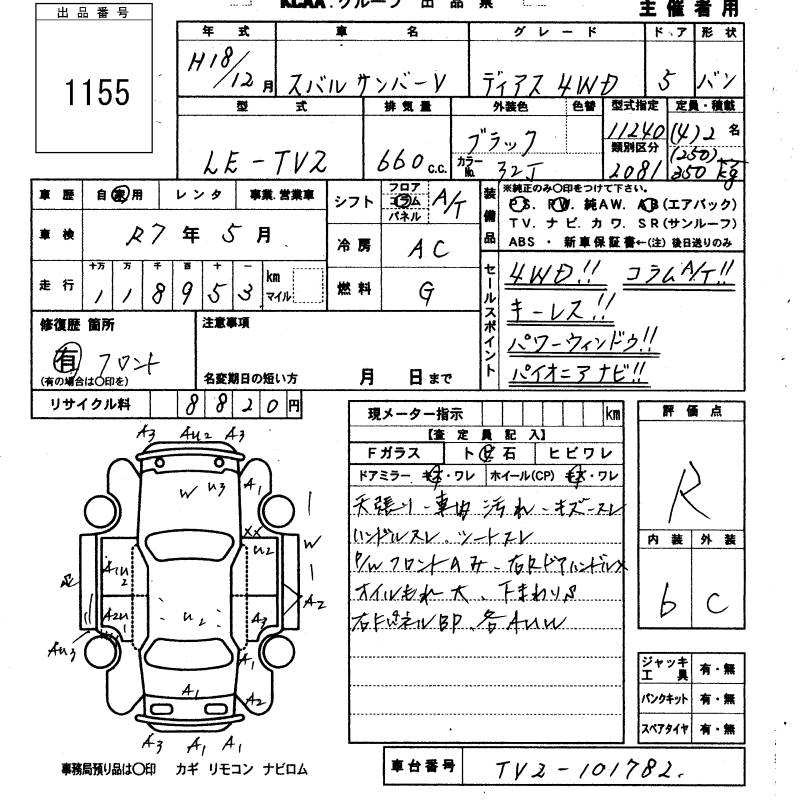 KCAA.グループ 出品票
主催者用
出品番号
1155
年式 車名 グレード ドア 形状
H18/12月 スバルサンバーV ディアス 4WD 5 バン
型式 排気量 外装色 色替 型式指定 定員・積載
LE-TV2 660c.c. ブラック カラーNo. 32J 11240 (4)2名
類別区分 (250)
2081 350kg
車歴 自家用 レンタ 事業.営業車
シフト フロア コラム パネル A/T
装備品 ※純正のみ○印をつけて下さい。
P.S. P.W. 純AW. AB(エアバック)
TV. ナビ. カワ. SR(サンルーフ)
ABS ・ 新車保証書←(注) 後日送りのみ
車検 R7年5月
冷房 AC
走行 十万 万 千 百 十 一 km マイル
118953
燃料 G
セールスポイント
4WD!! コラムA/T!!
キーレス!!
パワーウィンドウ!!
パイオニアナビ!!
修復歴 箇所 注意事項
有 フロント
(有の場合は○印を) 名変期日の短い方 月 日まで
リサイクル料 8820円
現メーター指示 km
【査定員記入】
Fガラス トビ石 ヒビワレ
ドアミラー キズ・ワレ ホイール(CP) キズ・ワレ
天張り・車内 汚れ・キズ・スレ
ハンドルスレ、シートスレ
P/Wフロントのみ・右Rドアハンドル×
オイルもれ大、下まわりS
評価点
R
内装 外装
6 C
A3 Au2 A3
W u3 A1
XX
u2
W
A1u2
A2u1
u2
A3
A2
Au3
A1
A1 A2
A3 A1 A1
ジャッキ工具 有・無
パンクキット 有・無
スペアタイヤ 有・無
事務局預り品は○印 カギ リモコン ナビロム
車台番号 TV2-101782.